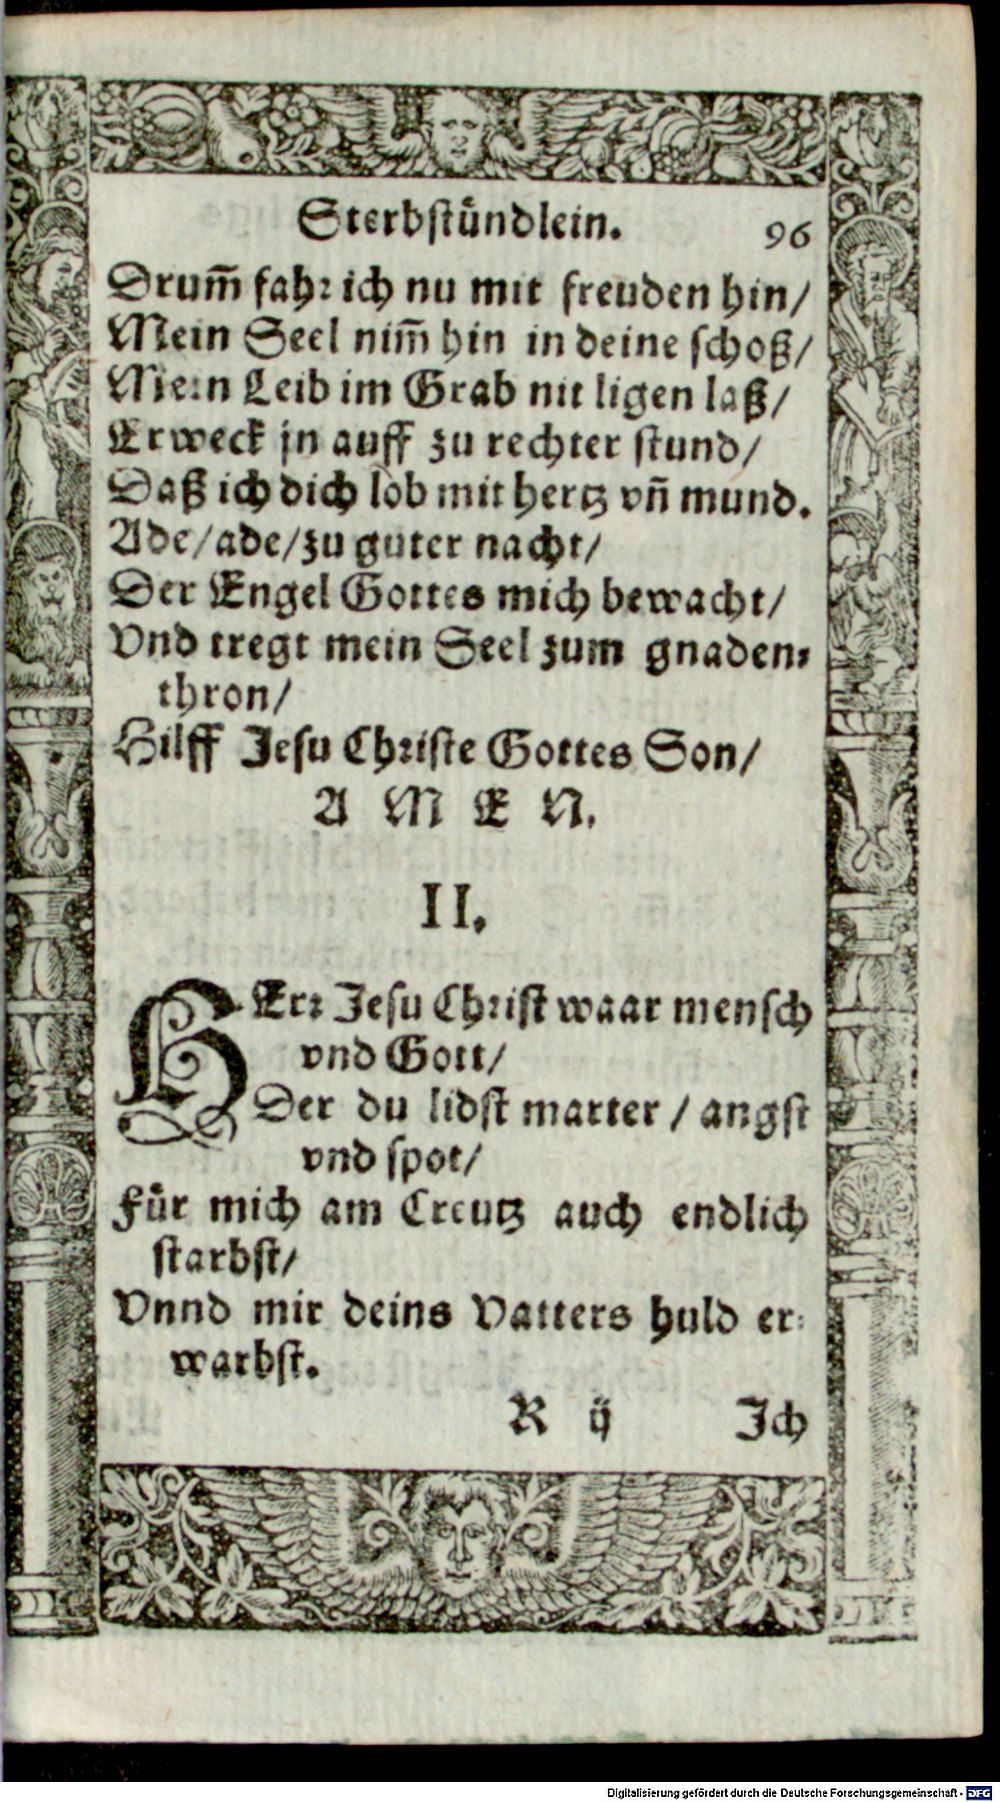 Sterbstündlein. 96
Drum̄ fahr ich nu mit freuden hin/
Mein Seel nim̄ hin in deine schoß/
Mein Leib im Grab nit ligen laß/
Erweck jn auff zu rechter stund/
Daß ich dich lob mit hertz vn̄ mund.
Ade/ade/zu guter nacht/
Der Engel Gottes mich bewacht/
Vnd tregt mein Seel zum gnaden-
thron/
Hilff Jesu Christe Gottes Son/
A M E N.
II.
HErr Jesu Christ waar mensch
vnd Gott/
Der du lidst marter / angst
vnd spot/
Für mich am Creutz auch endlich
starbst/
Vnnd mir deins Vatters huld er-
warbst.
R ij Jch
Digitalisierung gefördert durch die Deutsche Forschungsgemeinschaft - DFG